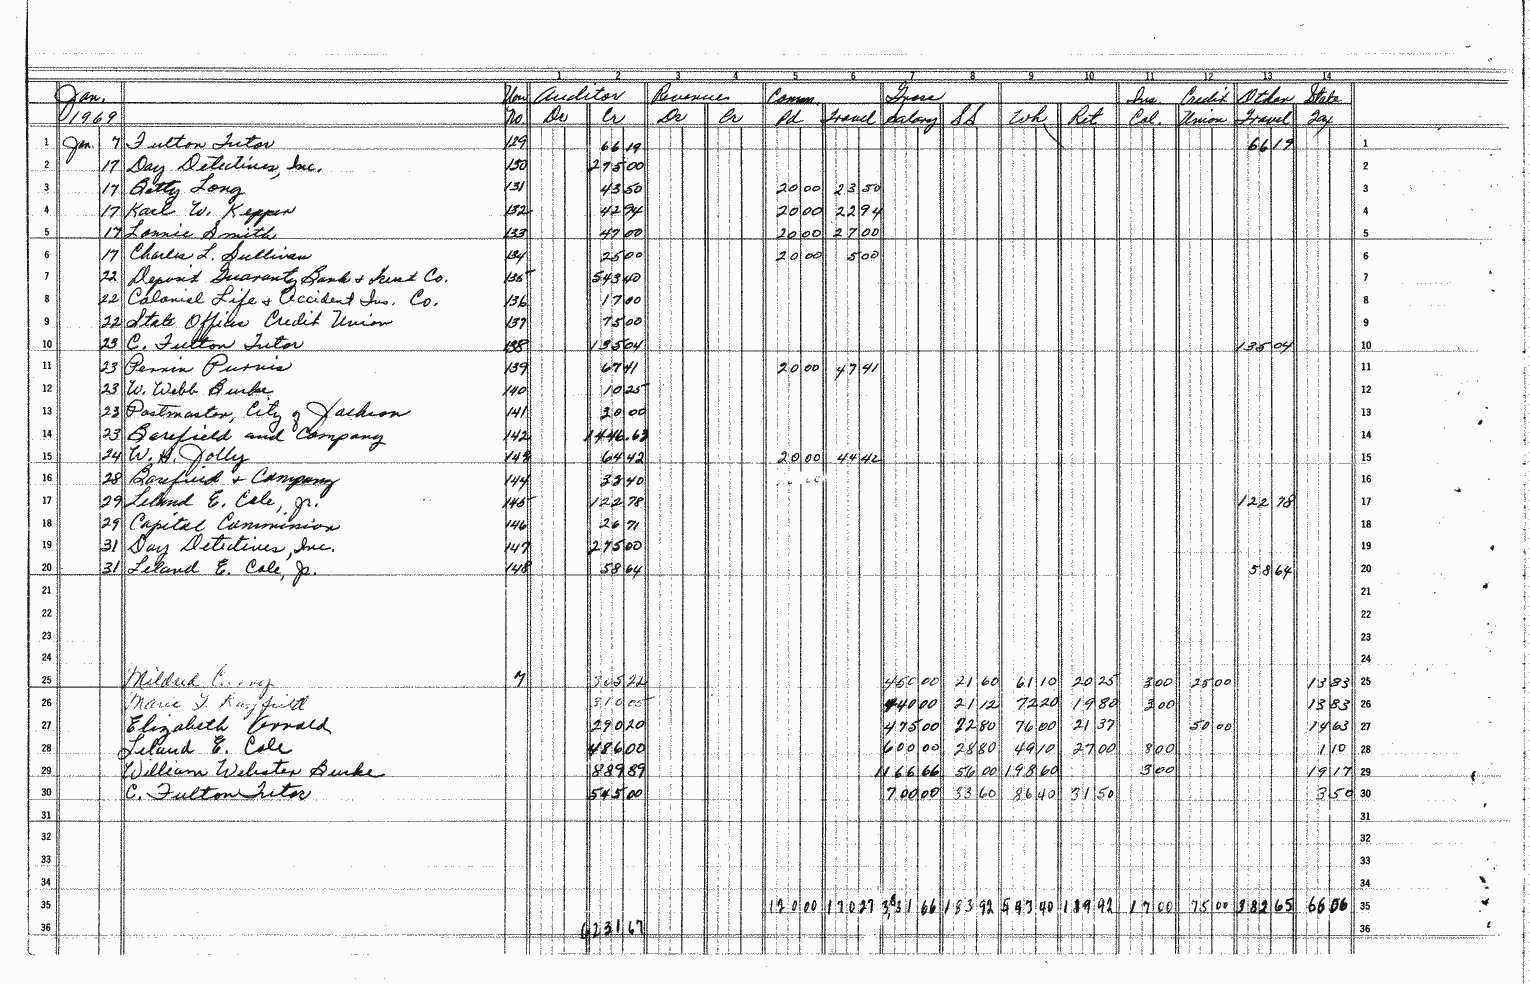 1 2 3 4 5 6 7 8 9 10 11 12 13 14
Jan. Auditor Revenues Comm. Gross Ins. Credit Other State
1969 No. Dr Cr Dr Cr Pd Travel Salary SS Wh Ret Col. Union Travel Tax
1 Jan. 7 Fulton Tutor 129 66 19 66 19 1
2 17 Day Detectives, Inc. 130 275 00 2
3 17 Betty Long 131 43 50 20 00 23 50 3
4 17 Karl W. Kepper 132 42 94 20 00 22 94 4
5 17 Lonnie Smith 133 47 00 20 00 27 00 5
6 17 Charles L. Sullivan 134 25 00 20 00 5 00 6
7 22 Deposit Guaranty Bank & Trust Co. 135 543 40 7
8 22 Colonial Life & Accident Ins. Co. 136 17 00 8
9 22 State Offices Credit Union 137 75 00 9
10 23 C. Fulton Tutor 138 135 04 135 04 10
11 23 Perrin Purvis 139 67 41 20 00 47 41 11
12 23 W. Webb Burke 140 10 25 12
13 23 Postmaster, City of Jackson 141 30 00 13
14 23 Barefield and Company 142 1446.63 14
15 24 W. H. Jolly 143 64 42 20 00 44 42 15
16 28 Barefield & Company 144 33 40 16
17 29 Leland E. Cole, Jr. 145 122 78 122 78 17
18 29 Capital Commission 146 26 71 18
19 31 Day Detectives, Inc. 147 275 00 19
20 31 Leland E. Cole, Jr. 148 58 64 58 64 20
21 21
22 22
23 23
24 24
25 Mildred 7 305 22 450 00 21 60 61 10 20 25 3 00 25 00 13 83 25
26 Marie 310 05 440 00 21 12 72 20 19 80 3 00 13 83 26
27 Elizabeth 290 20 475 00 22 80 76 00 21 37 50 00 14 63 27
28 Leland E. Cole 486 00 600 00 28 80 49 10 27 00 8 00 1 10 28
29 William Webster Burke 889 89 1166 66 56 00 198 60 3 00 19 17 29
30 C. Fulton Tutor 545 00 700 00 33 60 86 40 31 50 3 50 30
31 31
32 32
33 33
34 34
35 120 00 170 27 3,831 66 183 92 543 40 139 92 17 00 75 00 382 65 66 06 35
36 6231 67 36